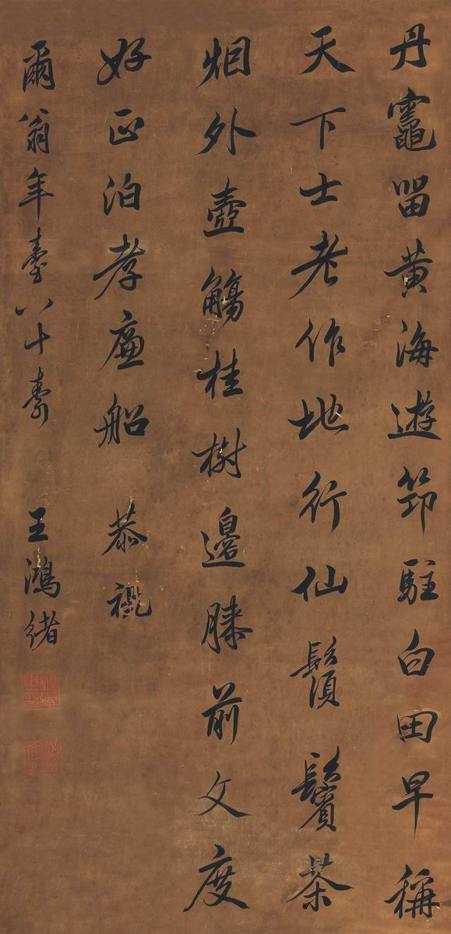 丹竈留黄海遊笻駐白田早稱
天下士老作地行仙鬚鬢茶
烟外壺觴桂樹邊膝前文度
好正泊孝廉船 恭禠
爾翁年臺八十壽 王鴻緒